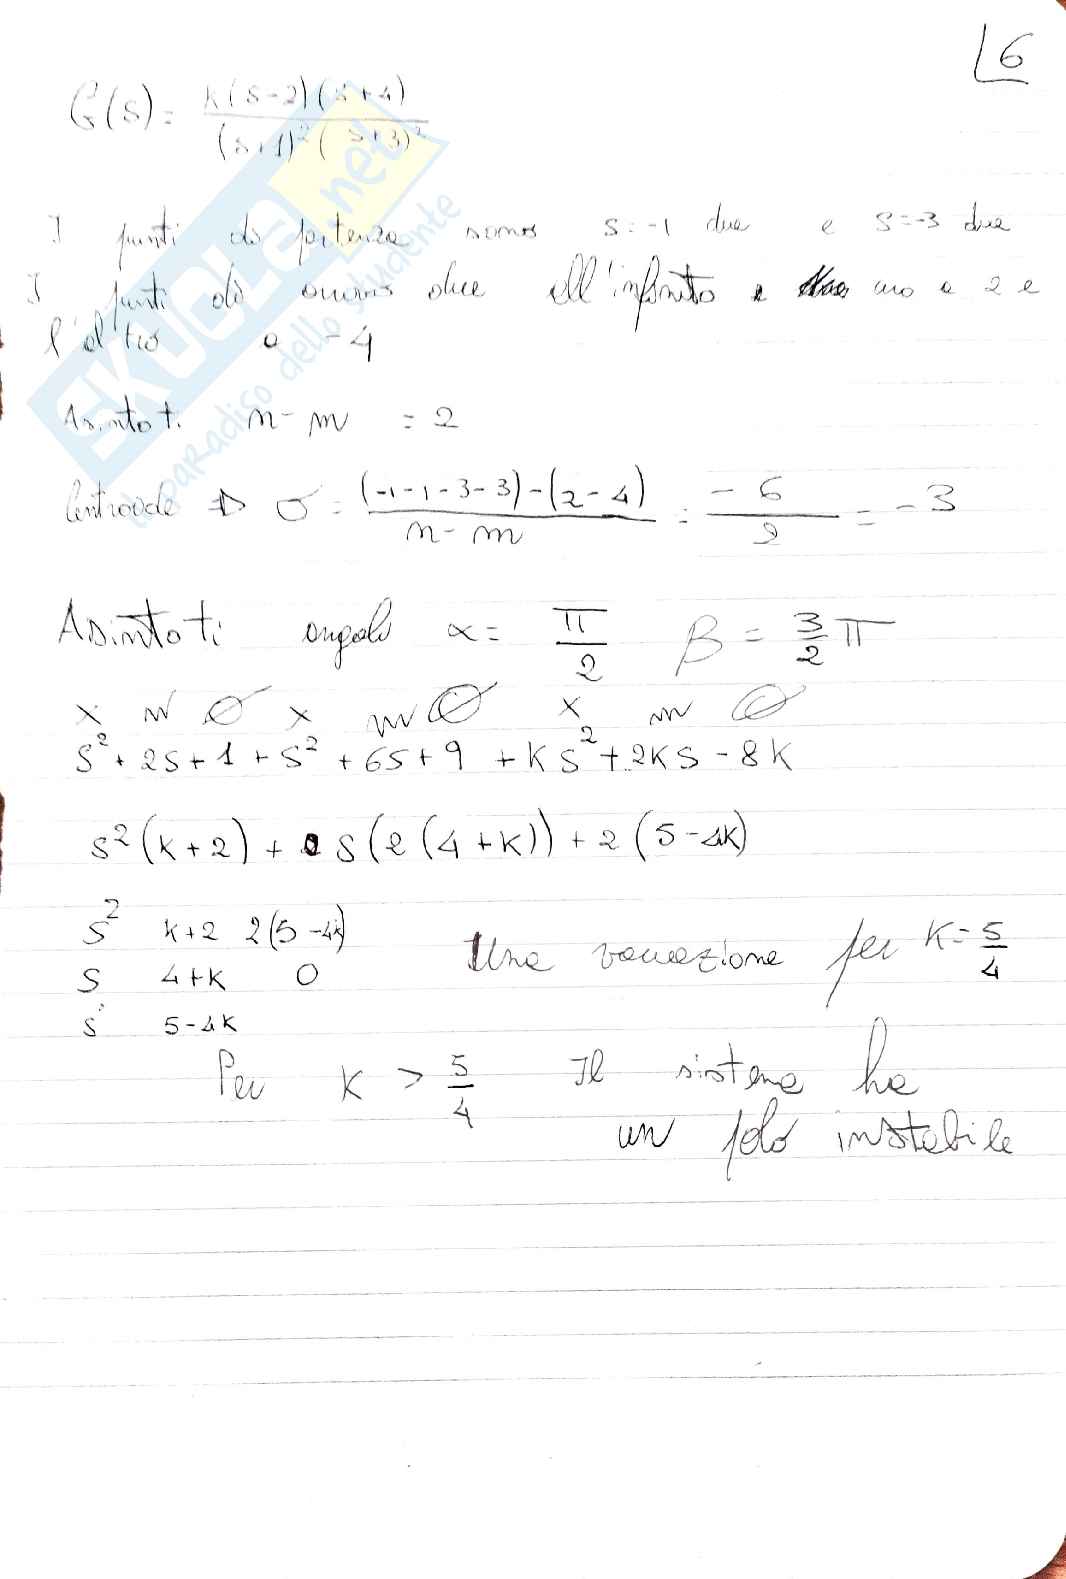 6
G(s) = k(s-2)(s+4) / (s+1)²(s+3)²
SKUOLA.net
il paradiso dello studente
I punti di partenza sono s=-1 due e s=-3 due
I punti di arrivo due all'infinito e uno a 2 e
l'altro a -4
Asintoti n-m = 2
Centroide ⇒ σ = (-1-1-3-3)-(2-4) / n-m = -6 / 2 = -3
Asintoti angoli α = π/2 β = 3/2 π
s²+2s+1+s²+6s+9+ks²+2ks-8k
s²(k+2)+s(2(4+k))+2(5-4k)
s² k+2 2(5-4k)
s 4+k 0
s° 5-4k
Una variazione per k=5/4
Per k > 5/4 Il sistema ha
un polo instabile